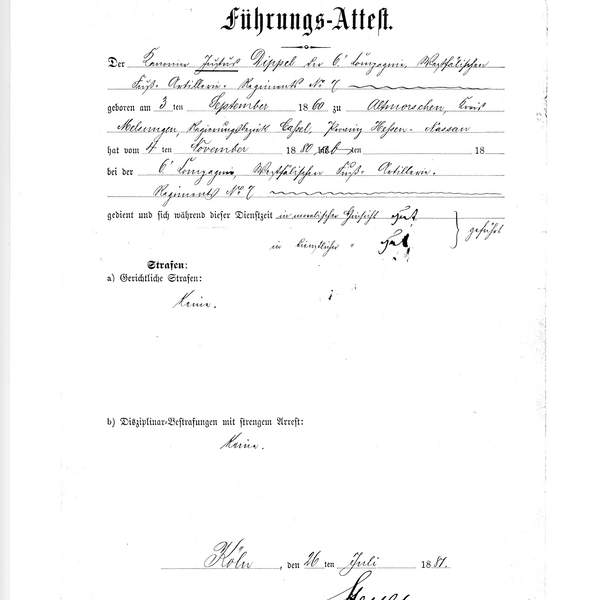 Führungs-Attest.
Der Kanonier Justus Dippel der 6t Compagnie, Westfälischen
Fuß-Artillerie-Regiments No 7
geboren am 3 ten September 1860 zu Altmorschen, Kreis
Melsungen, Regierungsbezirk Cassel, Provinz Hessen-Nassau
hat vom 4 ten November 1880 ten 18
bei der 6t Compagnie, Westfälischen Fuß-Artillerie-
Regiments No 7
gedient und sich während dieser Dienstzeit in moralischer Hinsicht Gut
in dienstlicher " Gut } geführt
Strafen:
a) Gerichtliche Strafen:
Keine.
b) Disziplinar-Bestrafungen mit strengem Arrest:
Keine.
Köln, den 26 ten Juli 1881.